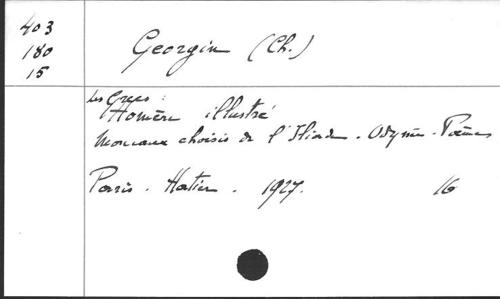 403
180
15
Georgin (Ch.)
Les Grecs :
Homère illustré
Morceaux choisis de l'Iliade - Odyssée - Poèmes
Paris - Hatier - 1927. 16